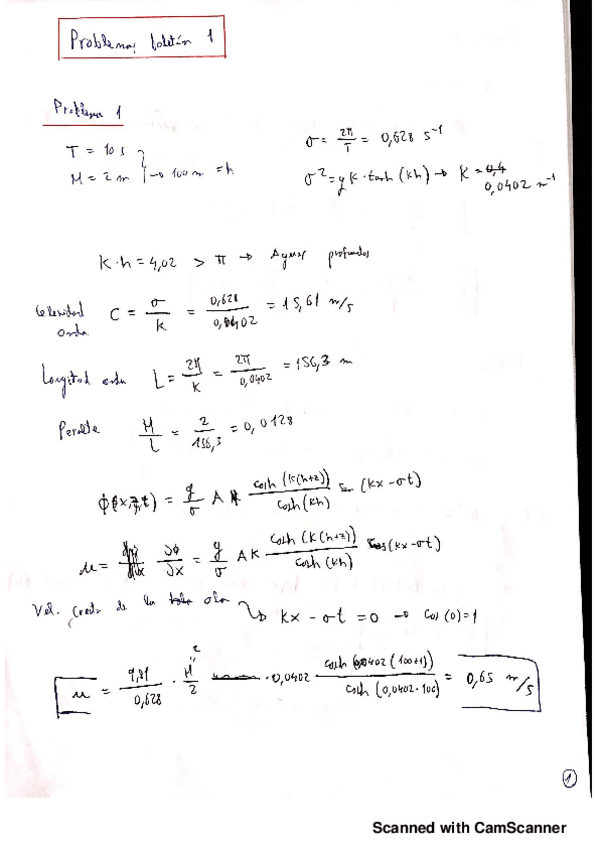 Problemas boletín 1
Problema 1
T = 10 s
H = 2 m → 100 m = h
σ = 2π/T = 0,628 s⁻¹
σ² = g K · tanh (kh) → K = 0,4
0,0402 m⁻¹
K·h = 4,02 > π → Aguas profundas
Celeridad onda C = σ/k = 0,628/0,0402 = 15,61 m/s
Longitud onda L = 2π/K = 2π/0,0402 = 156,3 m
Peralte H/L = 2/156,3 = 0,0128
ϕ(x,z,t) = g/σ A cosh (k(h+z))/cosh (kh) sen (kx - σt)
u = ∂ϕ/∂x = g/σ A K cosh (K(h+z))/cosh (kh) cos (kx - σt)
Vel. cresta de la ola → kx - σt = 0 → cos (0) = 1
u = 9,81/0,628 · H/2 · 0,0402 cosh (0,0402 (100+1))/cosh (0,0402·100) = 0,65 m/s
1
Scanned with CamScanner